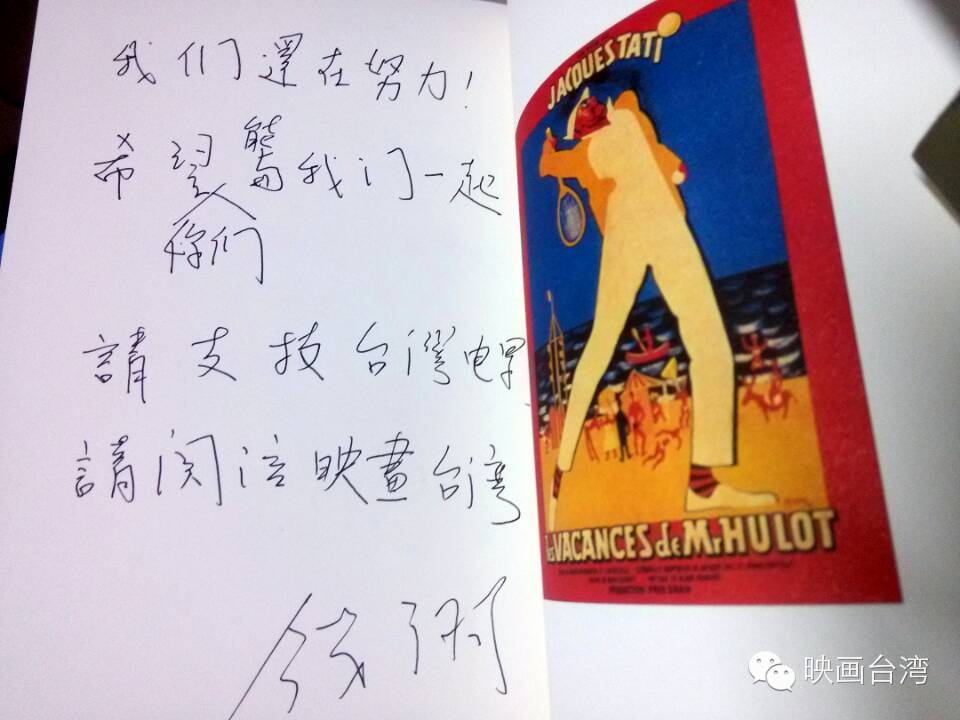 我们還在努力!
希望能我们一起
你们
請支技台灣电影
請関注映畫台湾
JACQUES TATI
Les VACANCES de Mr HULOT
映画台湾